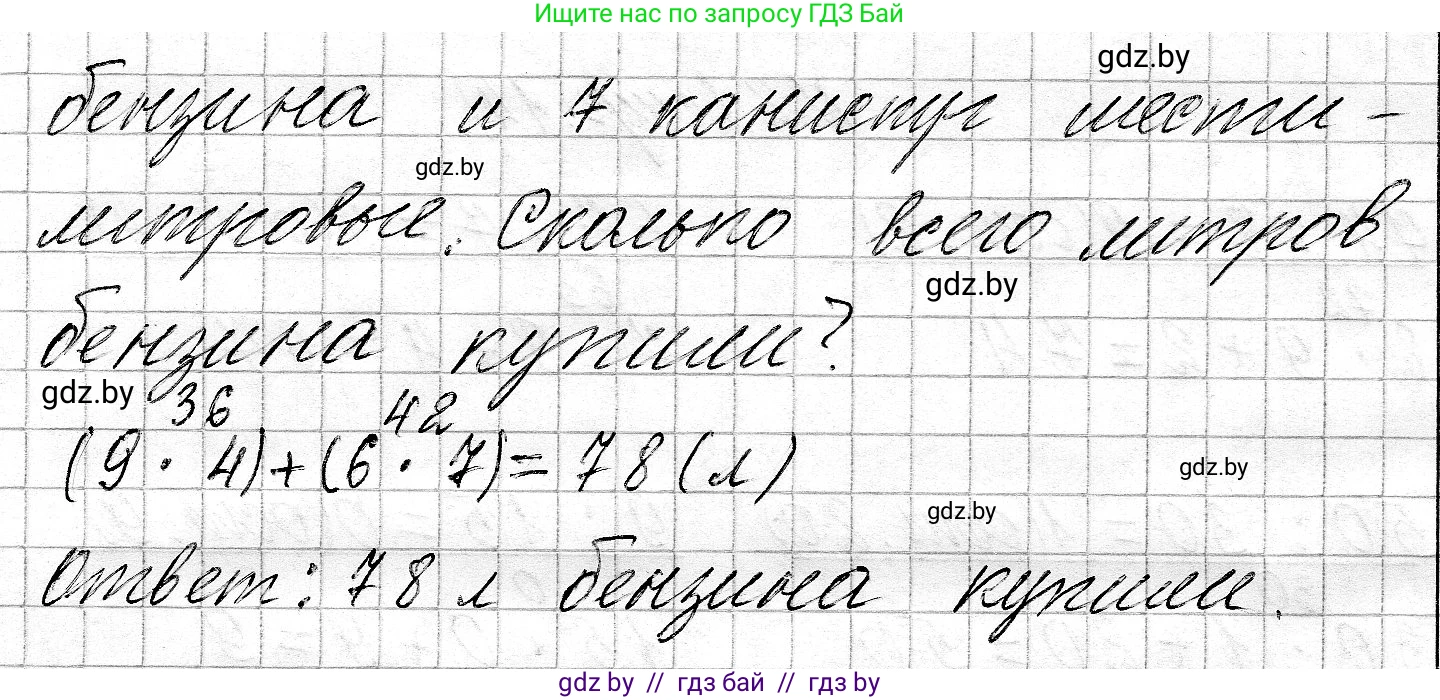 Ищите нас по запросу ГДЗ Бай
gdz.by
бензина и 7 канистр шести-
gdz.by
литровые. Сколько всего литров
gdz.by
бензина купили?
gdz.by 36 42
(9 · 4)+(6 · 7)= 78 (л)
gdz.by
gdz.by
Ответ: 78 л бензина купили.
gdz.by // гдз бай // гдз by